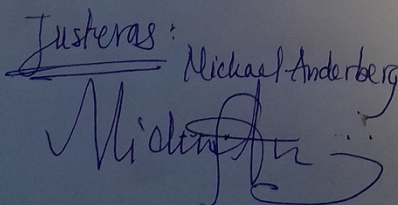 Justeras:
Michael Anderberg